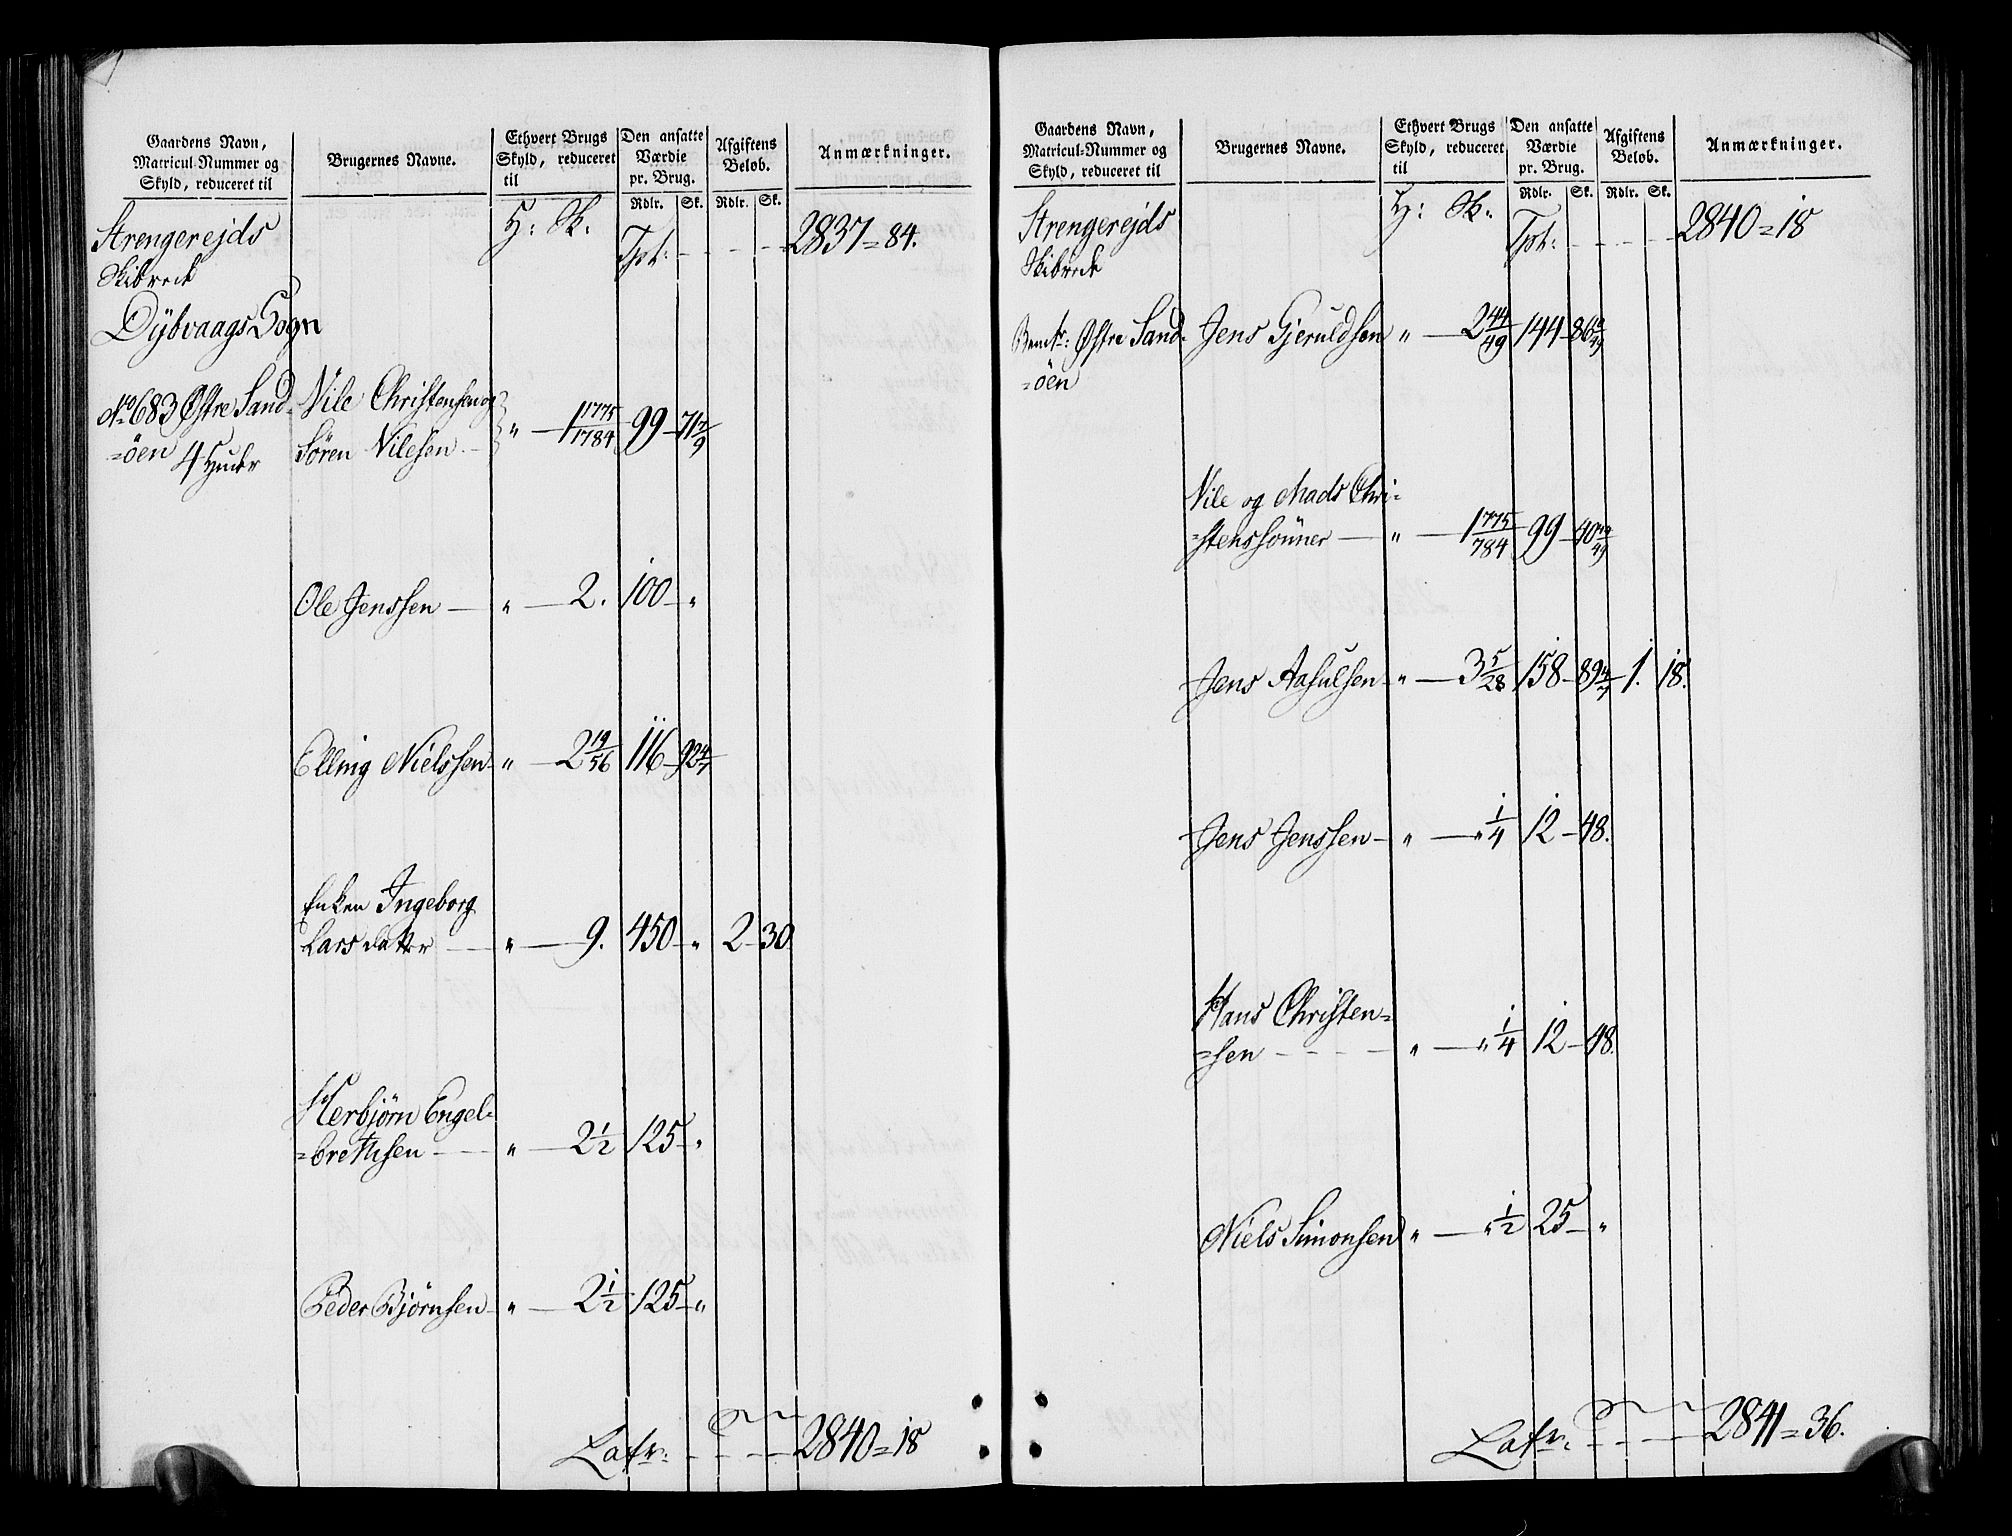 Gaardens Navn, Matricul-Nummer og Skyld, reduceret til | Brugernes Navne. | Ethvert Brugs Skyld, reduceret til | Den ansatte Værdie pr. Brug. | Afgiftens Belob. | Anmærkninger.
Rdlr. | Sk. | Rdlr. | Sk.
Strengerejds H: Sk. Tpt: - - - - 2837 = 84.
Skibrede
Dÿbvaags Sogn
No 683 Østre Sand- Nile Christensen og
=öen 4 Huder Sören Nilesen - " - 1 1775/1784 99 - 71 7/9
Ole Jenssen - " - 2. 100 - "
Elling Nielssen - " - 2 19/56 116 - 92 4/7
Enken Ingeborg
Lars datter - " - 9. 450 - " 2 - 30
Herbjörn Engel-
=brethsen - " - 2 1/2 125 - "
Peder Björnsen - " - 2 1/2 125 - "
Latr: - - - - 2840 = 18
Gaardens Navn, Matricul-Nummer og Skyld, reduceret til | Brugernes Navne. | Ethvert Brugs Skyld, reduceret til | Den ansatte Værdie pr. Brug. | Afgiftens Belob. | Anmærkninger.
Rdlr. | Sk. | Rdlr. | Sk.
Strengerejds H: Sk. Tpt: - - - - 2840 = 18
Skibrede
Østre Sand- Jens Gjeruldsen " - 2 44/49 144 - 86
=öen
Nile og Mads Chri-
=stenssönner - " - 1 775/784 99 - 40
Jens Aasulsen - " - 3 5/28 158 - 89 4/7 1. 18.
Jens Jenssen - " - " 1/4 12 - 48.
Hans Christen=
=sen - - - - " - " 1/4 12 - 48.
Niels Simonsen " - " 1/2 25 - "
Latr: - - - - 2841 = 36.